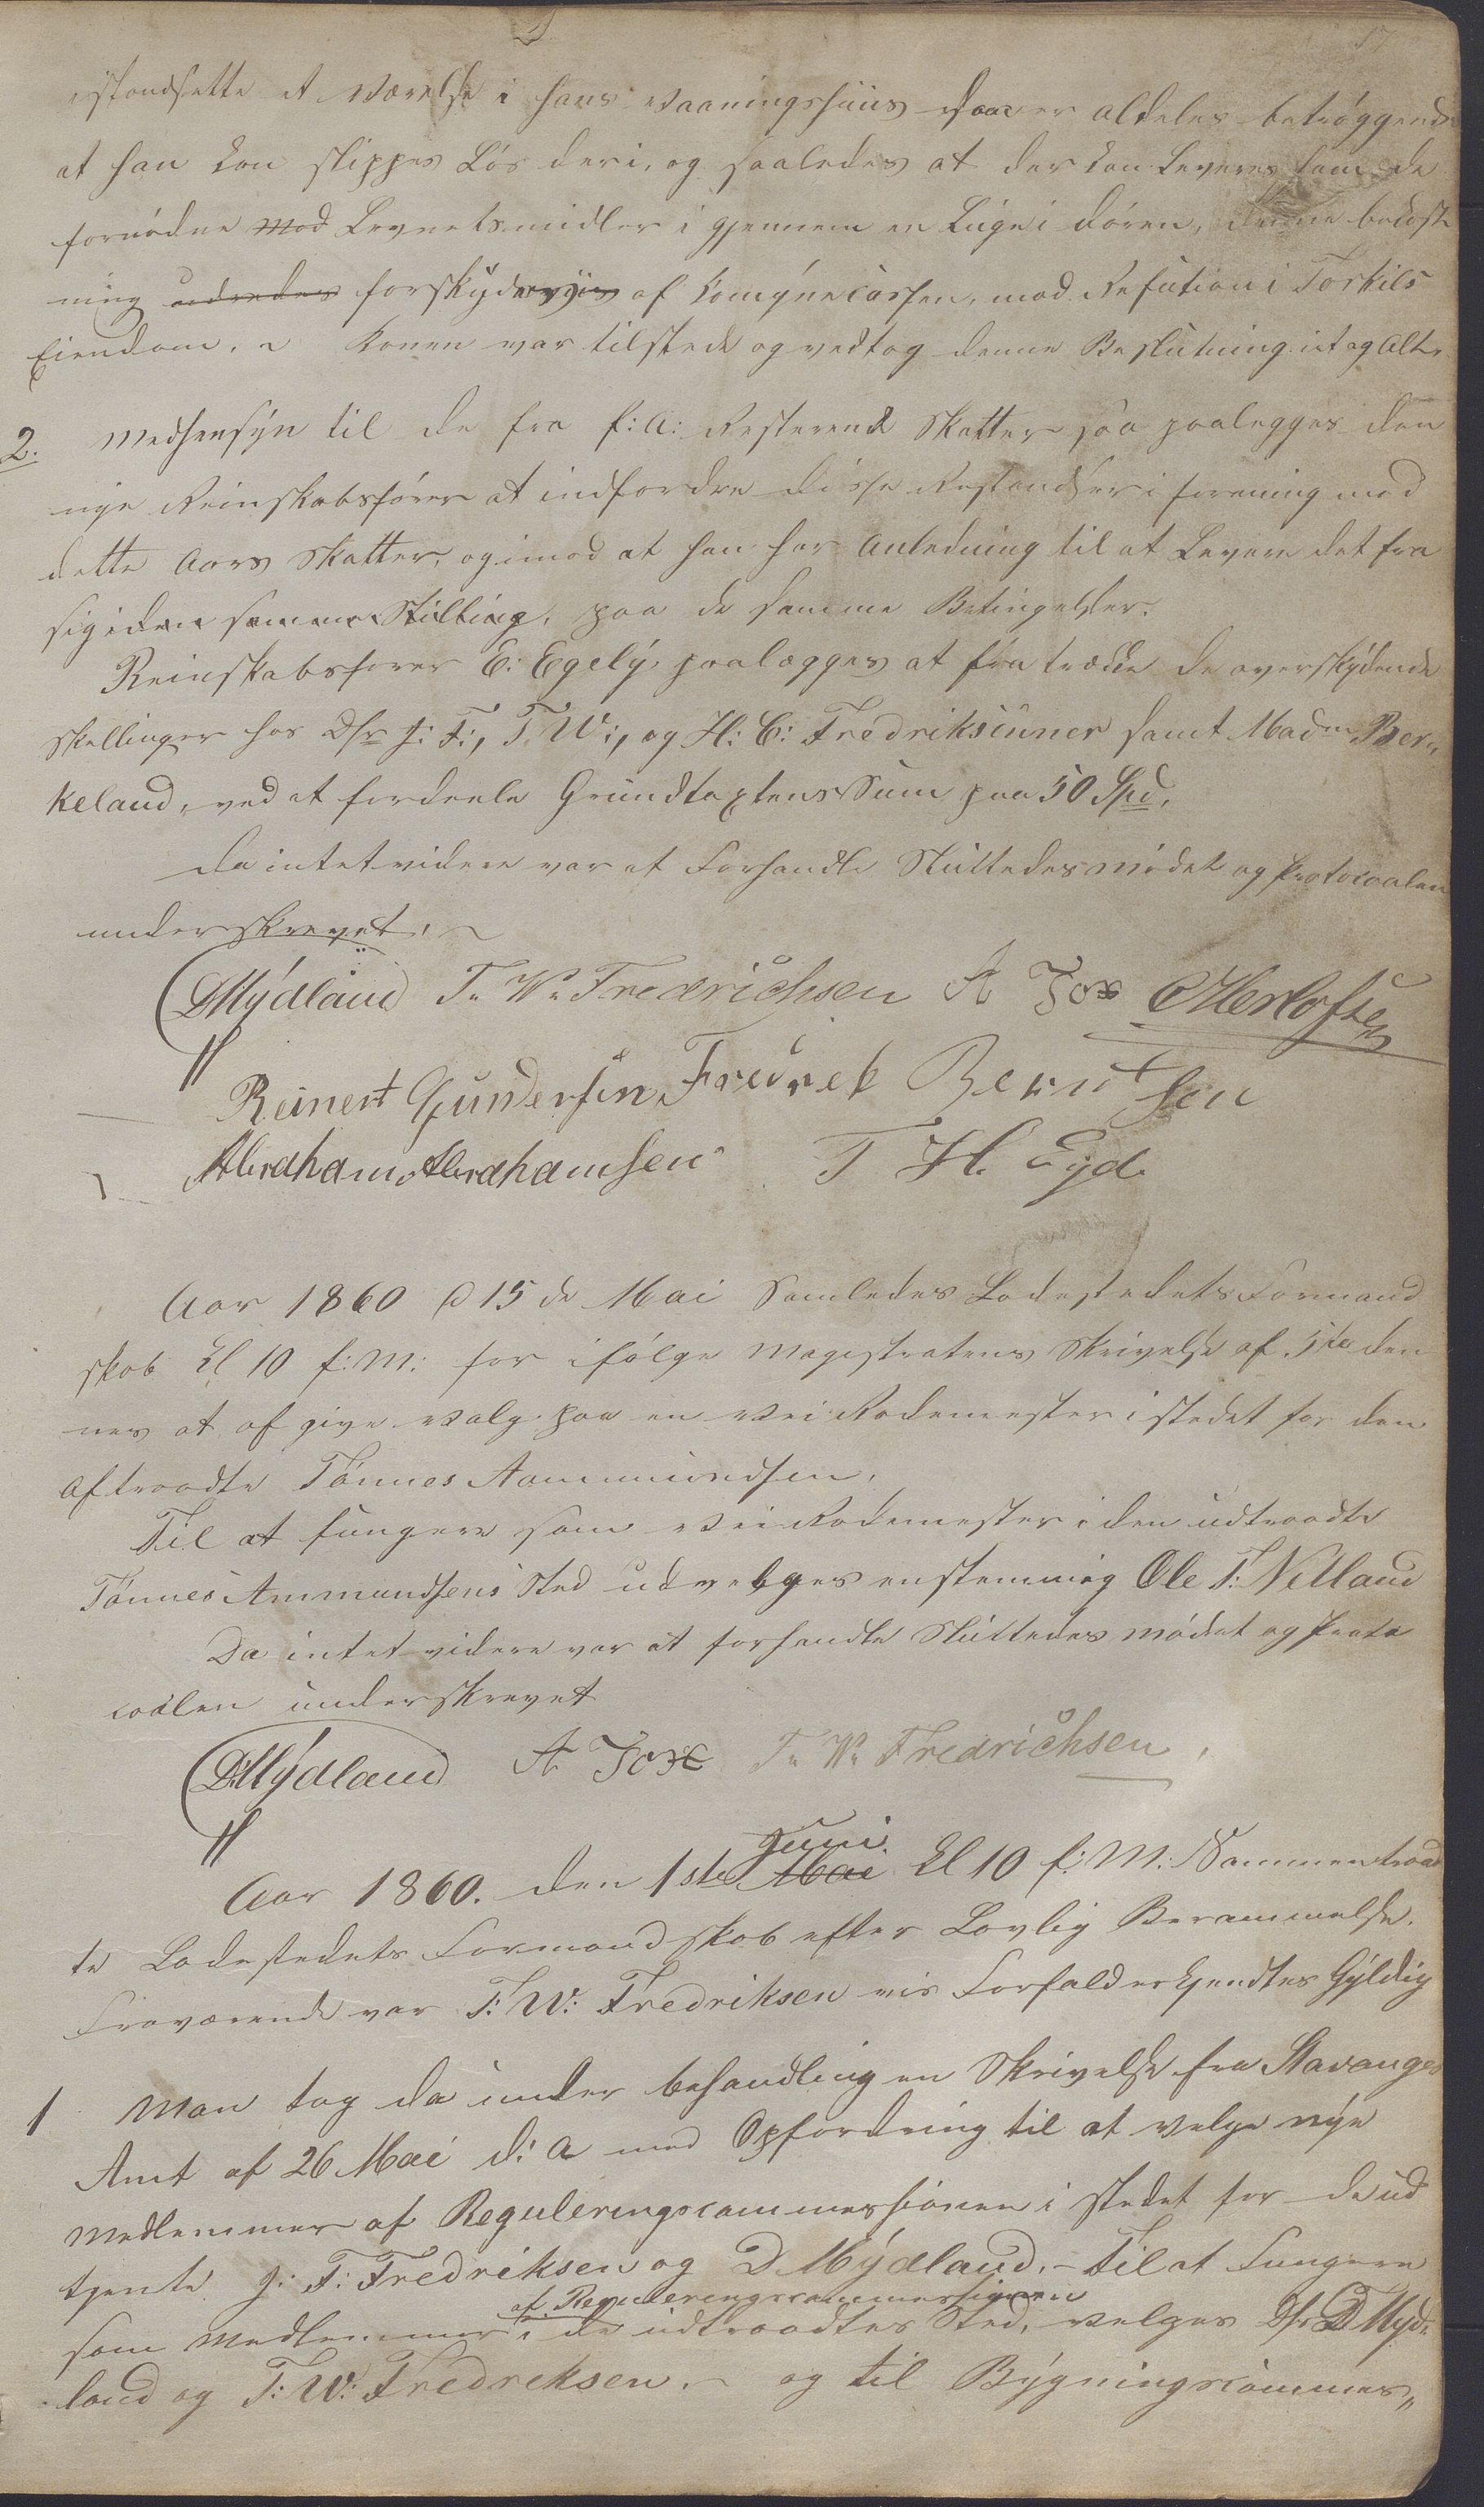 17
istandsette et Værelse i hans Vaaningshuus som er aldeles betryggende
at han kan slippes Løs deri, og saaledes at der kan Leveres ham de
fornødne Med Levnetsmidler i gjennem en Luge i Døren, denne bekost
ning udredes forskydesviis af Comynecassen, mod Refution i Torkils
Eiendom. Konen var tilstede og vedtog denne Beslutning i et og Alt.
2. Medhensyn til de fra f: A: Resterende Skatter saa paalegges den
nye Reinskabsfører at indfordre disse Restandser i forening med
dette Aars Skatter, og imod at han har Anledning til at Levere det fra
sig i den samme Stilling, paa de samme Betingelser.
Reinskabsfører E: Egely paalægges at fratrække de overskydende
Skellinger hos Dhr J: F:, T. W:, og H: C: Fredriksenner samt Madm Ber„
keland, ved at fordeele Grundtaxtens Sum paa 50 Spd.
Da intet videre var at Forhandle Sluttedes Mødet og Protocoalen
underskrevet.
DMydland T. W. Fredrichsen A Fox OHerlofsen
Reinert Gundersen Fredrek Berntsen
Abraham Abrahamsen T H. Eyde
Aar 1860 d 15 de Mai Samledes Ladestedets Formand
skab Kl 10 f: M: for ifølge Magistratens Skrivelse af 5te den
nes at af give Valg paa en Vei Rodemester i stedet for den
aftraadte Tønnes Aammundsen.
Til at fungere som Vei Rodemester i den udtraadte
Tønnes Ammundsens Sted udvelges enstemmig Ole T: Netland
Da intet videre var at forhandle Sluttedes mødet og Proto
coalen underskrevet
DMydland A Fox T. W. Fredrichsen.
Juni
Aar 1860. den 1ste Mai Kl 10 f: M: Sammentraad
te Ladestedets Formandskab efter Lovlig Berammelse.
Fraværende var T: W: Fredriksen vis Forfald erkjendtes Gyldig
1 Man tog da under behandling en Skrivelse fra Stavanger
Amt af 26 Mai d: A med Opfordring til at velge nye
Medlemmer af Reguleringscommessionen i stedet for de ud
tjente J: F: Fredriksen og D Mydland. – Til at Fungere
af Reguleringscommessionen
som Medlemmer i de udtraadtes Sted, velges Dhr D Myd„
land og T: W: Fredreksen. – og til Bygningscommes„